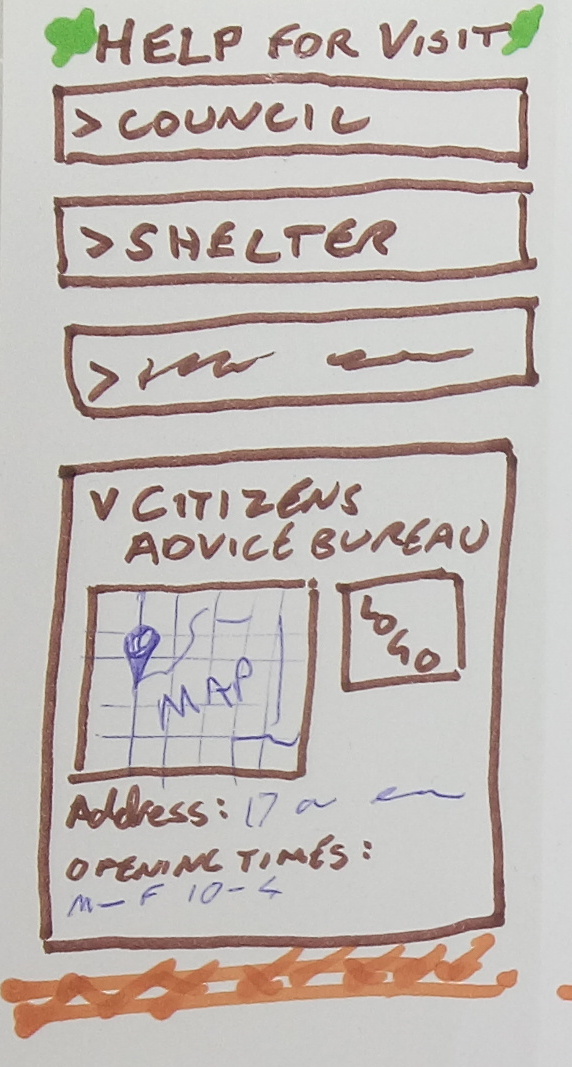 HELP FOR VISIT
> COUNCIL
> SHELTER
>
V CITIZENS
ADVICE BUREAU
MAP
LOGO
Address: 17
OPENING TIMES:
M-F 10-4